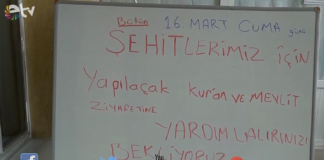 etv
Bütün 16 MART CUMA günü
ŞEHİTLERİMİZ İÇİN
Yapılaçak Kur'an ve MEVLİT
ZİYAFETİNE
YARDIMLALIRINIZI
BEKLİYORUZ